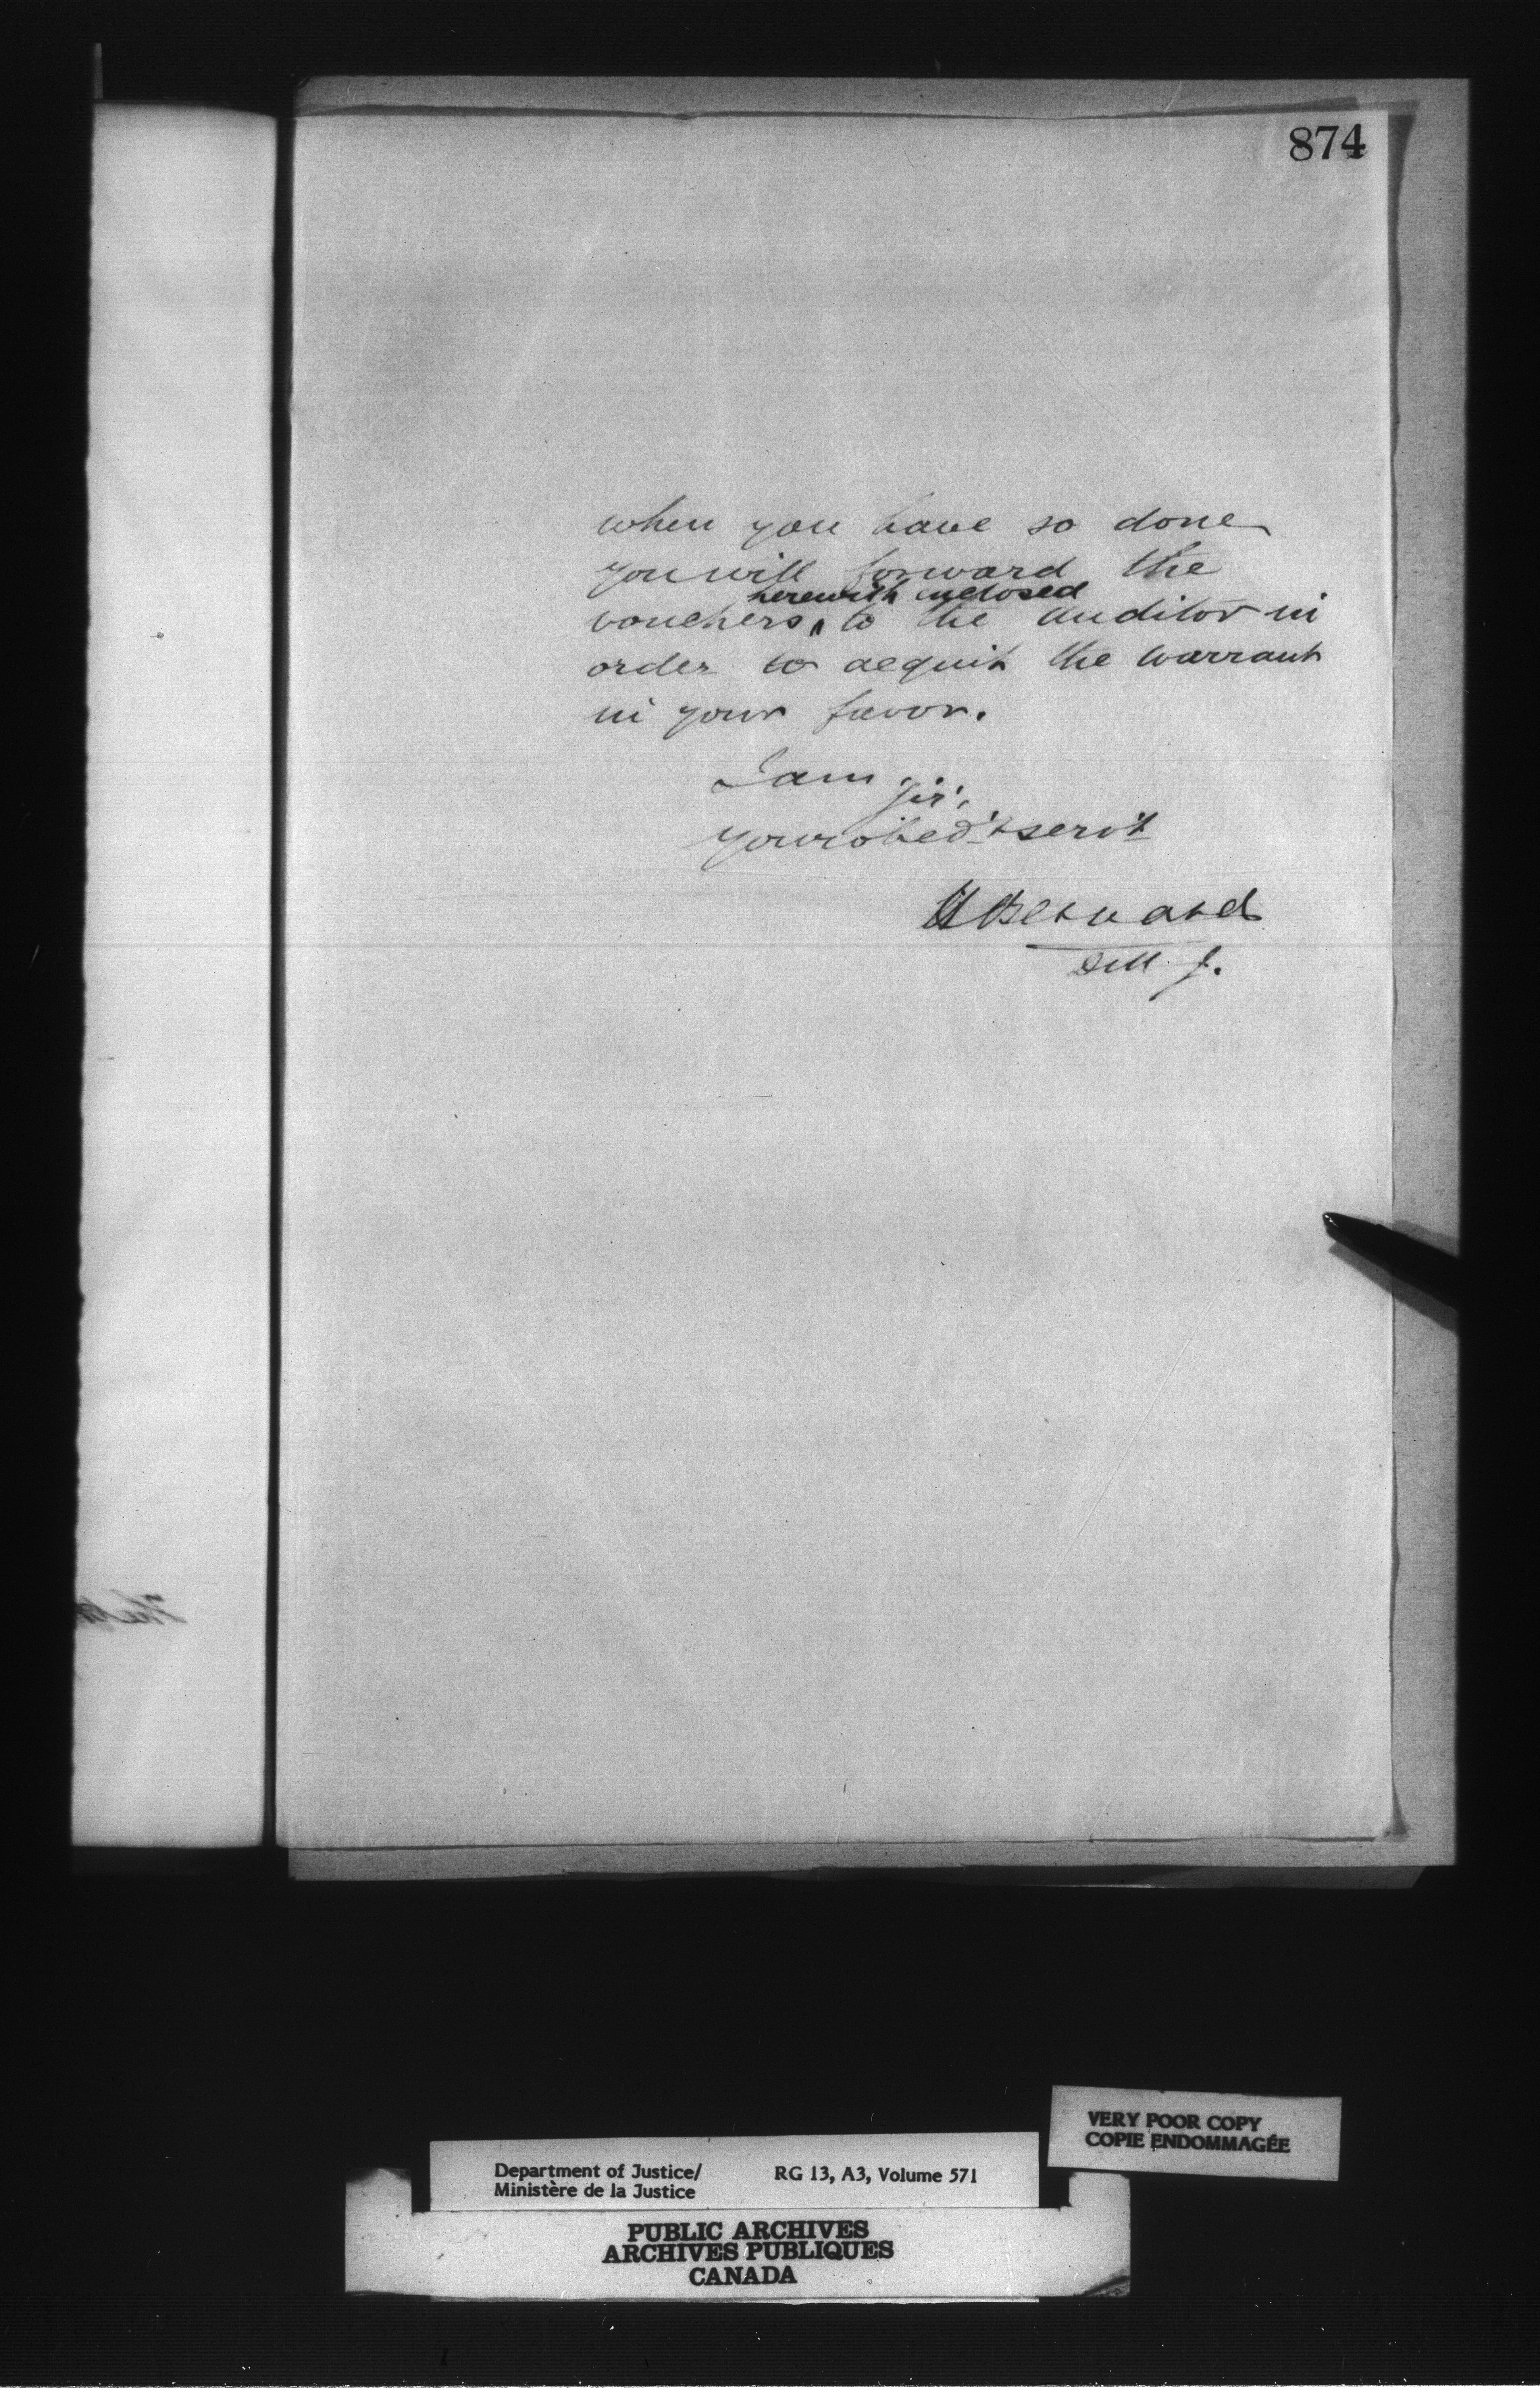 874
when you have so done
you will forward the
herewith enclosed
vouchers ^ to the auditor in
order to acquit the warrant
in your favor.
I am
Sir,
your obed't serv't
H Bernard
D M J.
Department of Justice/
Ministère de la Justice
RG 13, A3, Volume 571
PUBLIC ARCHIVES
ARCHIVES PUBLIQUES
CANADA
VERY POOR COPY
COPIE ENDOMMAGÉE